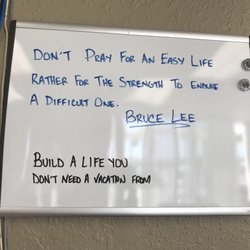 DON'T PRAY FOR AN EASY LIFE
RATHER FOR THE STRENGTH TO ENDURE
A DIFFICULT ONE.
BRUCE LEE
BUILD A LIFE YOU
DON'T NEED A VACATION FROM